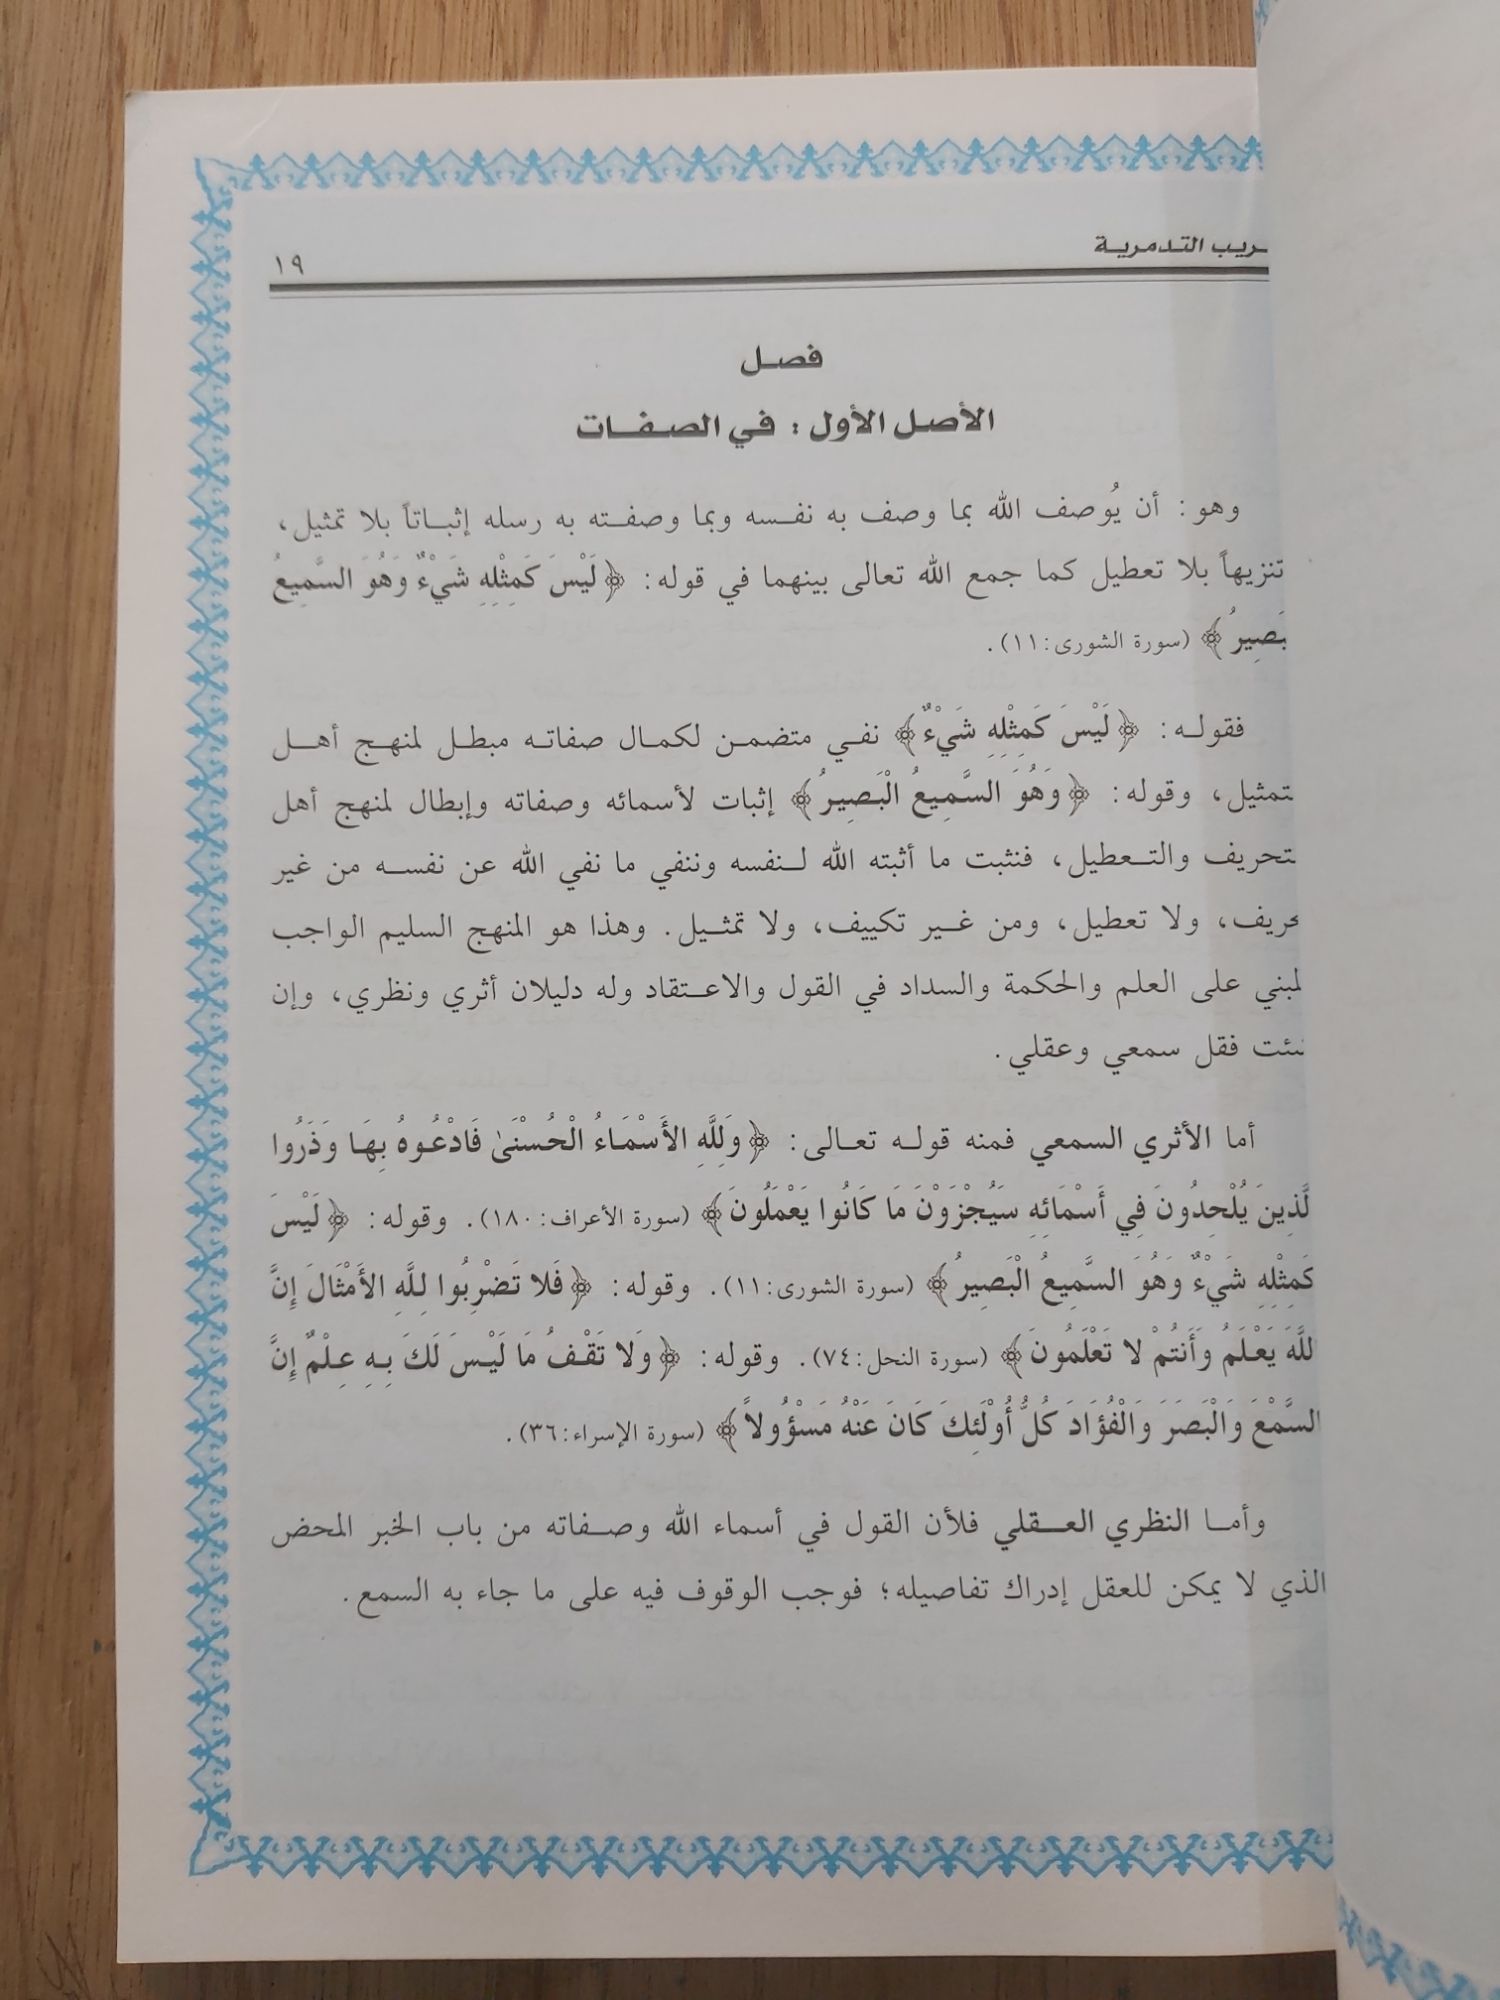 ـريب التدمرية
١٩
فصل
الأصل الأول : في الصفات
وهو : أن يُوصف الله بما وصف به نفسه وبما وصفته به رسله إثباتاً بلا تمثيل،
تنزيهاً بلا تعطيل كما جمع الله تعالى بينهما في قوله : ﴿لَيْسَ كَمِثْلِهِ شَيْءٌ وَهُوَ السَّمِيعُ
بَصِيرُ﴾ (سورة الشورى: ١١).
فقوله : ﴿لَيْسَ كَمِثْلِهِ شَيْءٌ﴾ نفي متضمن لكمال صفاته مبطل لمنهج أهل
ـتمثيل، وقوله : ﴿وَهُوَ السَّمِيعُ الْبَصِيرُ﴾ إثبات لأسمائه وصفاته وإبطال لمنهج أهل
ـتحريف والتعطيل، فنثبت ما أثبته الله لنفسه وننفي ما نفي الله عن نفسه من غير
ـحريف، ولا تعطيل، ومن غير تكييف، ولا تمثيل. وهذا هو المنهج السليم الواجب
لمبني على العلم والحكمة والسداد في القول والاعتقاد وله دليلان أثري ونظري، وإن
ـئت فقل سمعي وعقلي.
أما الأثري السمعي فمنه قوله تعالى : ﴿وَلِلَّهِ الأَسْمَاءُ الْحُسْنَىٰ فَادْعُوهُ بِهَا وَذَرُوا
لَّذِينَ يُلْحِدُونَ فِي أَسْمَائِهِ سَيُجْزَوْنَ مَا كَانُوا يَعْمَلُونَ﴾ (سورة الأعراف: ١٨٠). وقوله : ﴿لَيْسَ
كَمِثْلِهِ شَيْءٌ وَهُوَ السَّمِيعُ الْبَصِيرُ﴾ (سورة الشورى: ١١). وقوله : ﴿فَلا تَضْرِبُوا لِلَّهِ الأَمْثَالَ إِنَّ
للَّهَ يَعْلَمُ وَأَنتُمْ لا تَعْلَمُونَ﴾ (سورة النحل: ٧٤). وقوله : ﴿وَلا تَقْفُ مَا لَيْسَ لَكَ بِهِ عِلْمٌ إِنَّ
السَّمْعَ وَالْبَصَرَ وَالْفُؤَادَ كُلُّ أُوْلَئِكَ كَانَ عَنْهُ مَسْؤُولاً﴾ (سورة الإسراء: ٣٦).
وأما النظري العقلي فلأن القول في أسماء الله وصفاته من باب الخبر المحض
الذي لا يمكن للعقل إدراك تفاصيله؛ فوجب الوقوف فيه على ما جاء به السمع.